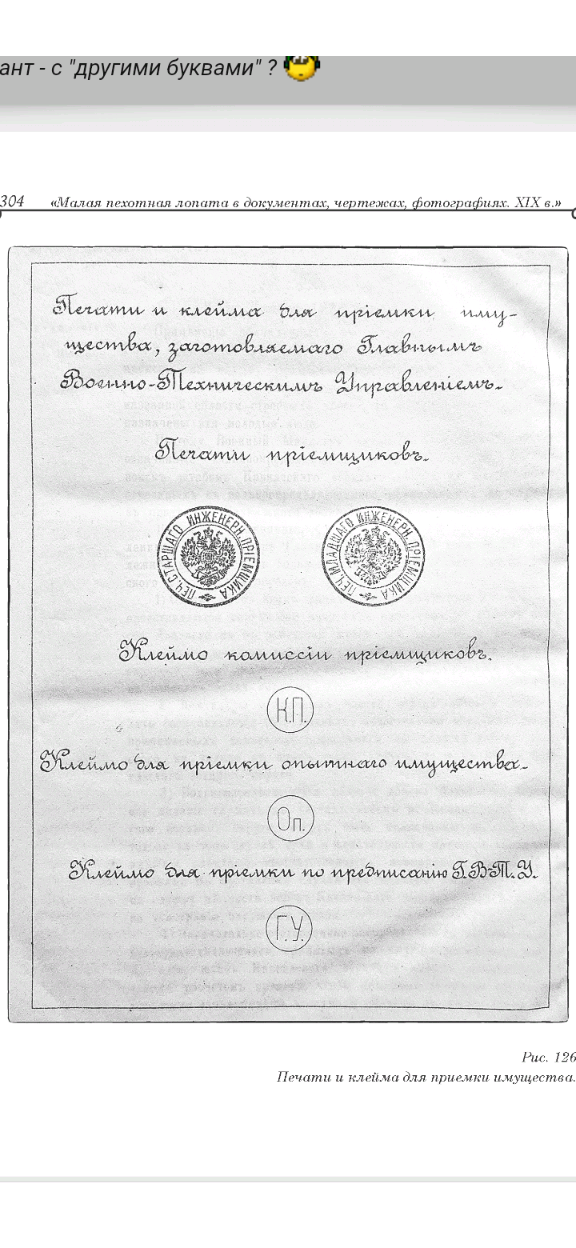 ант - с "другими буквами" ?
304 «Малая пехотная лопата в документах, чертежах, фотографиях. XIX в.»
Печати и клейма для пріемки иму-
щества, заготовляемаго Главнымъ
Военно-Техническимъ Управленіемъ.
Печати пріемщиковъ.
ПЕЧ. СТАРШАГО ИНЖЕНЕРН. ПРІЕМЩИКА
ПЕЧ. МЛАДШАГО ИНЖЕНЕРН. ПРІЕМЩИКА
Клеймо комиссіи пріемщиковъ.
К.П.
Клеймо для пріемки опытнаго имущества.
Оп.
Клеймо для пріемки по предписанію Г.В.Т.У.
Г.У.
Рис. 126
Печати и клейма для приемки имущества.